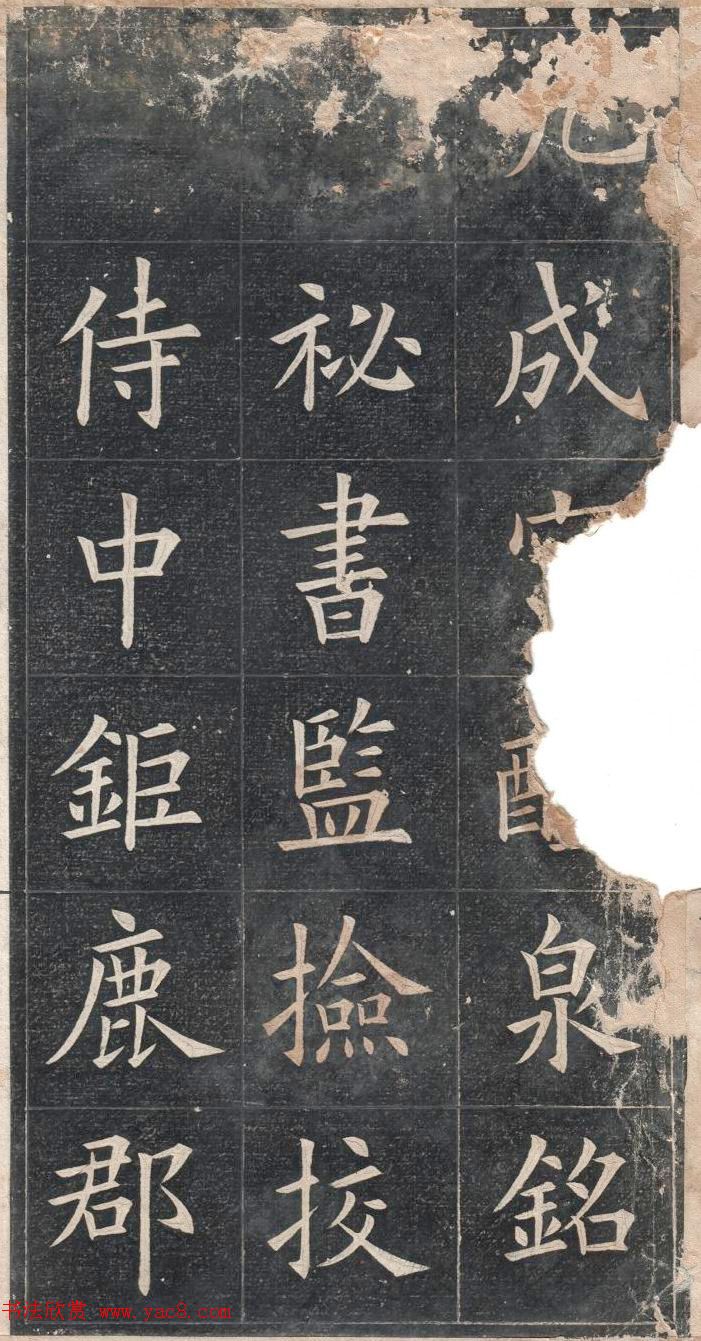 成泉銘
祕書監撿挍
侍中鉅鹿郡
书法欣赏 www.yac8.com